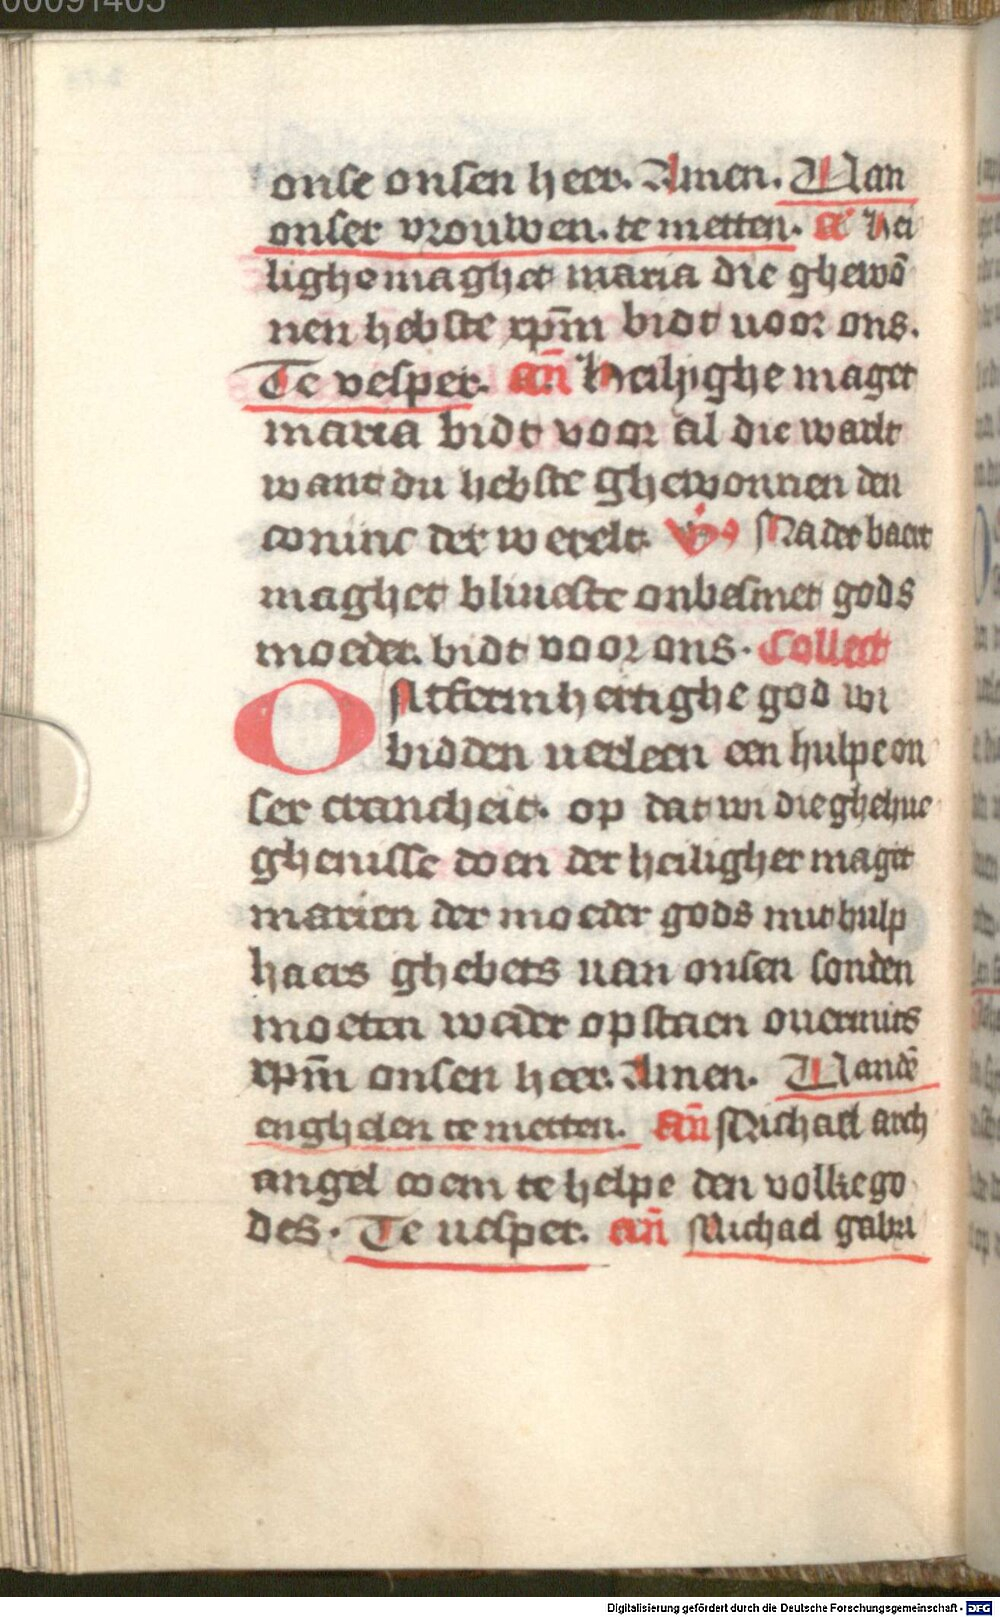 00091405
onse onsen heer. Amen. Uan
onser vrouwen. te metten. a͞ hei
lighe maghet maria die ghewō
nen hebste xpm̄ bidt uoor ons.
Te vesper. an̄ heilighe maget
maria bidt voor al die warlt
want du hebste ghewonnen den
coninc der werelt. V̓ Na der baert
maghet bliueste onbesmet gods
moeder. bidt voor ons. Collect
O Ntfermhertighe god wi
bidden uerleen een hulpe on
ser crancheit. op dat wi die ghehue
ghenisse doen der heiligher maget
marien der moeder gods mit hulp
haers ghebets uan onsen sonden
moeten weder opstaen ouermits
xpm̄ onsen heer. Amen. Uandē
enghelen te metten. an̄ Michael arch
angel coem te helpe den volke go
des. Te uesper. an̄ Michael gabri
Digitalisierung gefördert durch die Deutsche Forschungsgemeinschaft - DFG